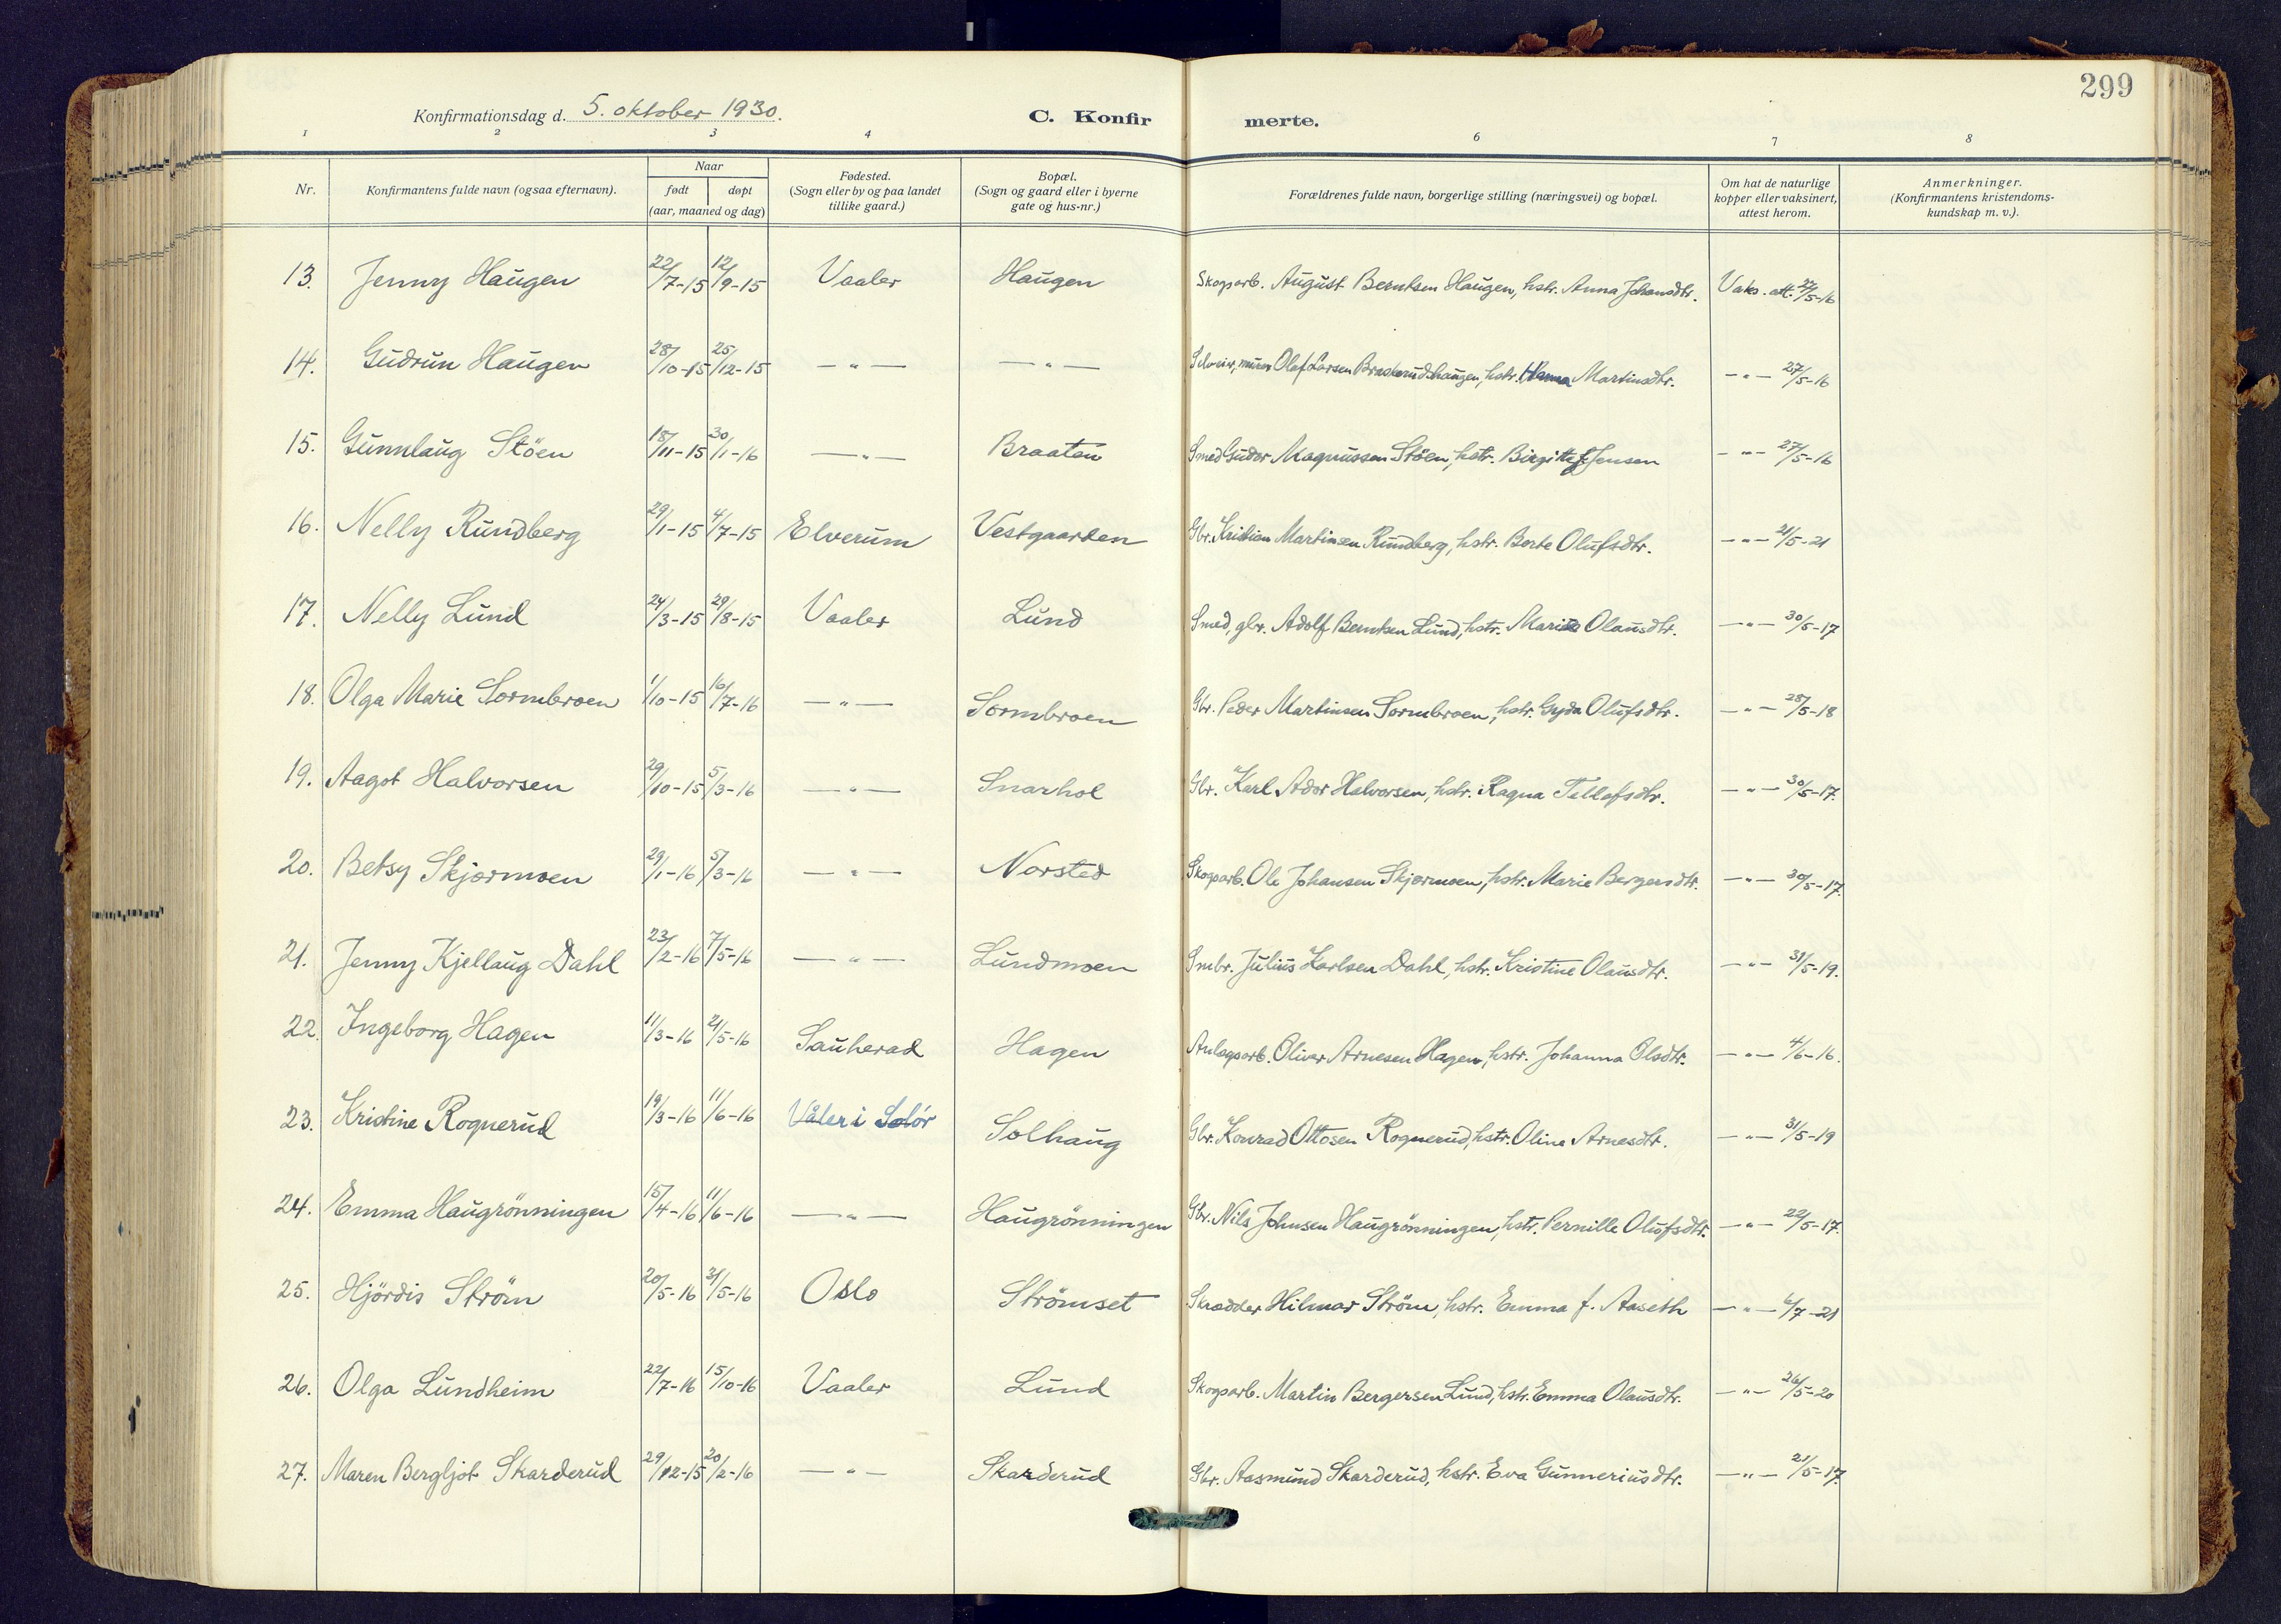 299
Konfirmationsdag d. 5. oktober 1930. C. Konfirmerte.
1 2 3 4 6 7 8
Nr. Konfirmantens fulde navn (ogsaa efternavn). Naar født døpt (aar, maaned og dag) Fødested. (Sogn eller by og paa landet tillike gaard.) Bopæl. (Sogn og gaard eller i byerne gate og hus-nr.) Forældrenes fulde navn, borgerlige stilling (næringsvei) og bopæl. Om hat de naturlige kopper eller vaksinert, attest herom. Anmerkninger. (Konfirmantens kristendoms-kundskap m. v.).
13. Jenny Haugen 22/7-15 12/9-15 Vaaler Haugen Skogsarb. August Berntsen Haugen, hstr. Anna Johansdtr. Vaks. att. 27/5-16
14. Gudrun Haugen 28/10-15 25/12-15 —"— —"— Selveier, murer Olaf Larsen Braskerudshaugen, hstr. Hanna Martinsdtr. —"— 27/5-16
15. Gunnlaug Stöen 18/11-15 30/1-16 —"— Braaten Smed Gudor Magnussen Stöen, hstr. Birgitte f. Jensen —"— 27/5-16
16. Nelly Rundberg 29/1-15 4/7-15 Elverum Vestgaarden Gbr. Kristian Martinsen Rundberg, hstr. Berte Olufsdtr. —"— 21/5-21
17. Nelly Lund 24/3-15 29/8-15 Vaaler Lund Smed, gbr. Adolf Berntsen Lund, hstr. Marie Olausdtr. —"— 30/5-17
18. Olga Marie Sormbroen 1/10-15 16/7-16 —"— Sormbroen Gbr. Peder Martinsen Sormbroen, hstr. Gyda Olufsdtr. —"— 28/5-18
19. Aagot Halvorsen 29/10-15 5/3-16 —"— Snarhol Gbr. Karl Ador Halvorsen, hstr. Ragna Tellefsdtr. —"— 30/5-17.
20. Betsy Skjærmoen 29/1-16 5/3-16 —"— Norsted Skogsarb. Ole Johansen Skjærmoen, hstr. Marie Bergersdtr. —"— 30/5-17.
21. Jenny Kjellaug Dahl 23/2-16 7/5-16 —"— Lundmoen Smbr. Julius Karlsen Dahl, hstr. Kristine Olausdtr. —"— 31/5-19.
22. Ingeborg Hagen 11/3-16 21/5-16 Sauherad Hagen Anlegsarb. Oliver Arnesen Hagen, hstr. Johanna Olsdtr. —"— 4/6-16.
23. Kristine Rognerud 19/3-16 11/6-16 Våler i Solör Solhaug Gbr. Konrad Ottosen Rognerud, hstr. Oline Arnesdtr. —"— 31/5-19
24. Emma Haugrönningen 15/4-16 11/6-16 —"— Haugrönningen Gbr. Nils Johnsen Haugrönningen, hstr. Pernille Olufsdtr. —"— 22/5-17.
25. Hjördis Ström 20/5-16 31/5-16 Oslo Strömset Skrædder Hilmar Ström, hstr. Emma f. Aaseth —"— 6/7-21
26. Olga Lundheim 22/7-16 15/10-16 Vaaler Lund Skogsarb. Martin Bergersen Lund, hstr. Emma Olausdtr. —"— 26/5-20
27. Maren Bergljot Skarderud 29/12-15 20/2-16 —"— Skarderud Gbr. Aasmund Skarderud, hstr. Eva Gunneriusdtr. —"— 21/5-17.